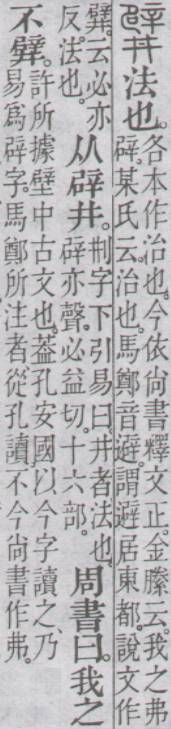 𨐨法也。各本作治也。今依尚書釋文正。金縢云。我之弗
辟。某氏云。治也。馬鄭音避。謂避居東都。說文作
𨐨。云必亦
反。法也。
从辟井。㓝字下引易曰。井者法也
辟亦聲。必益切。十六部。
周書曰。我之
不𨐨。許所據壁中古文也。葢孔安國以今字讀之、乃
易爲辟字。馬鄭所注者從孔讀。不今尚書作弗。